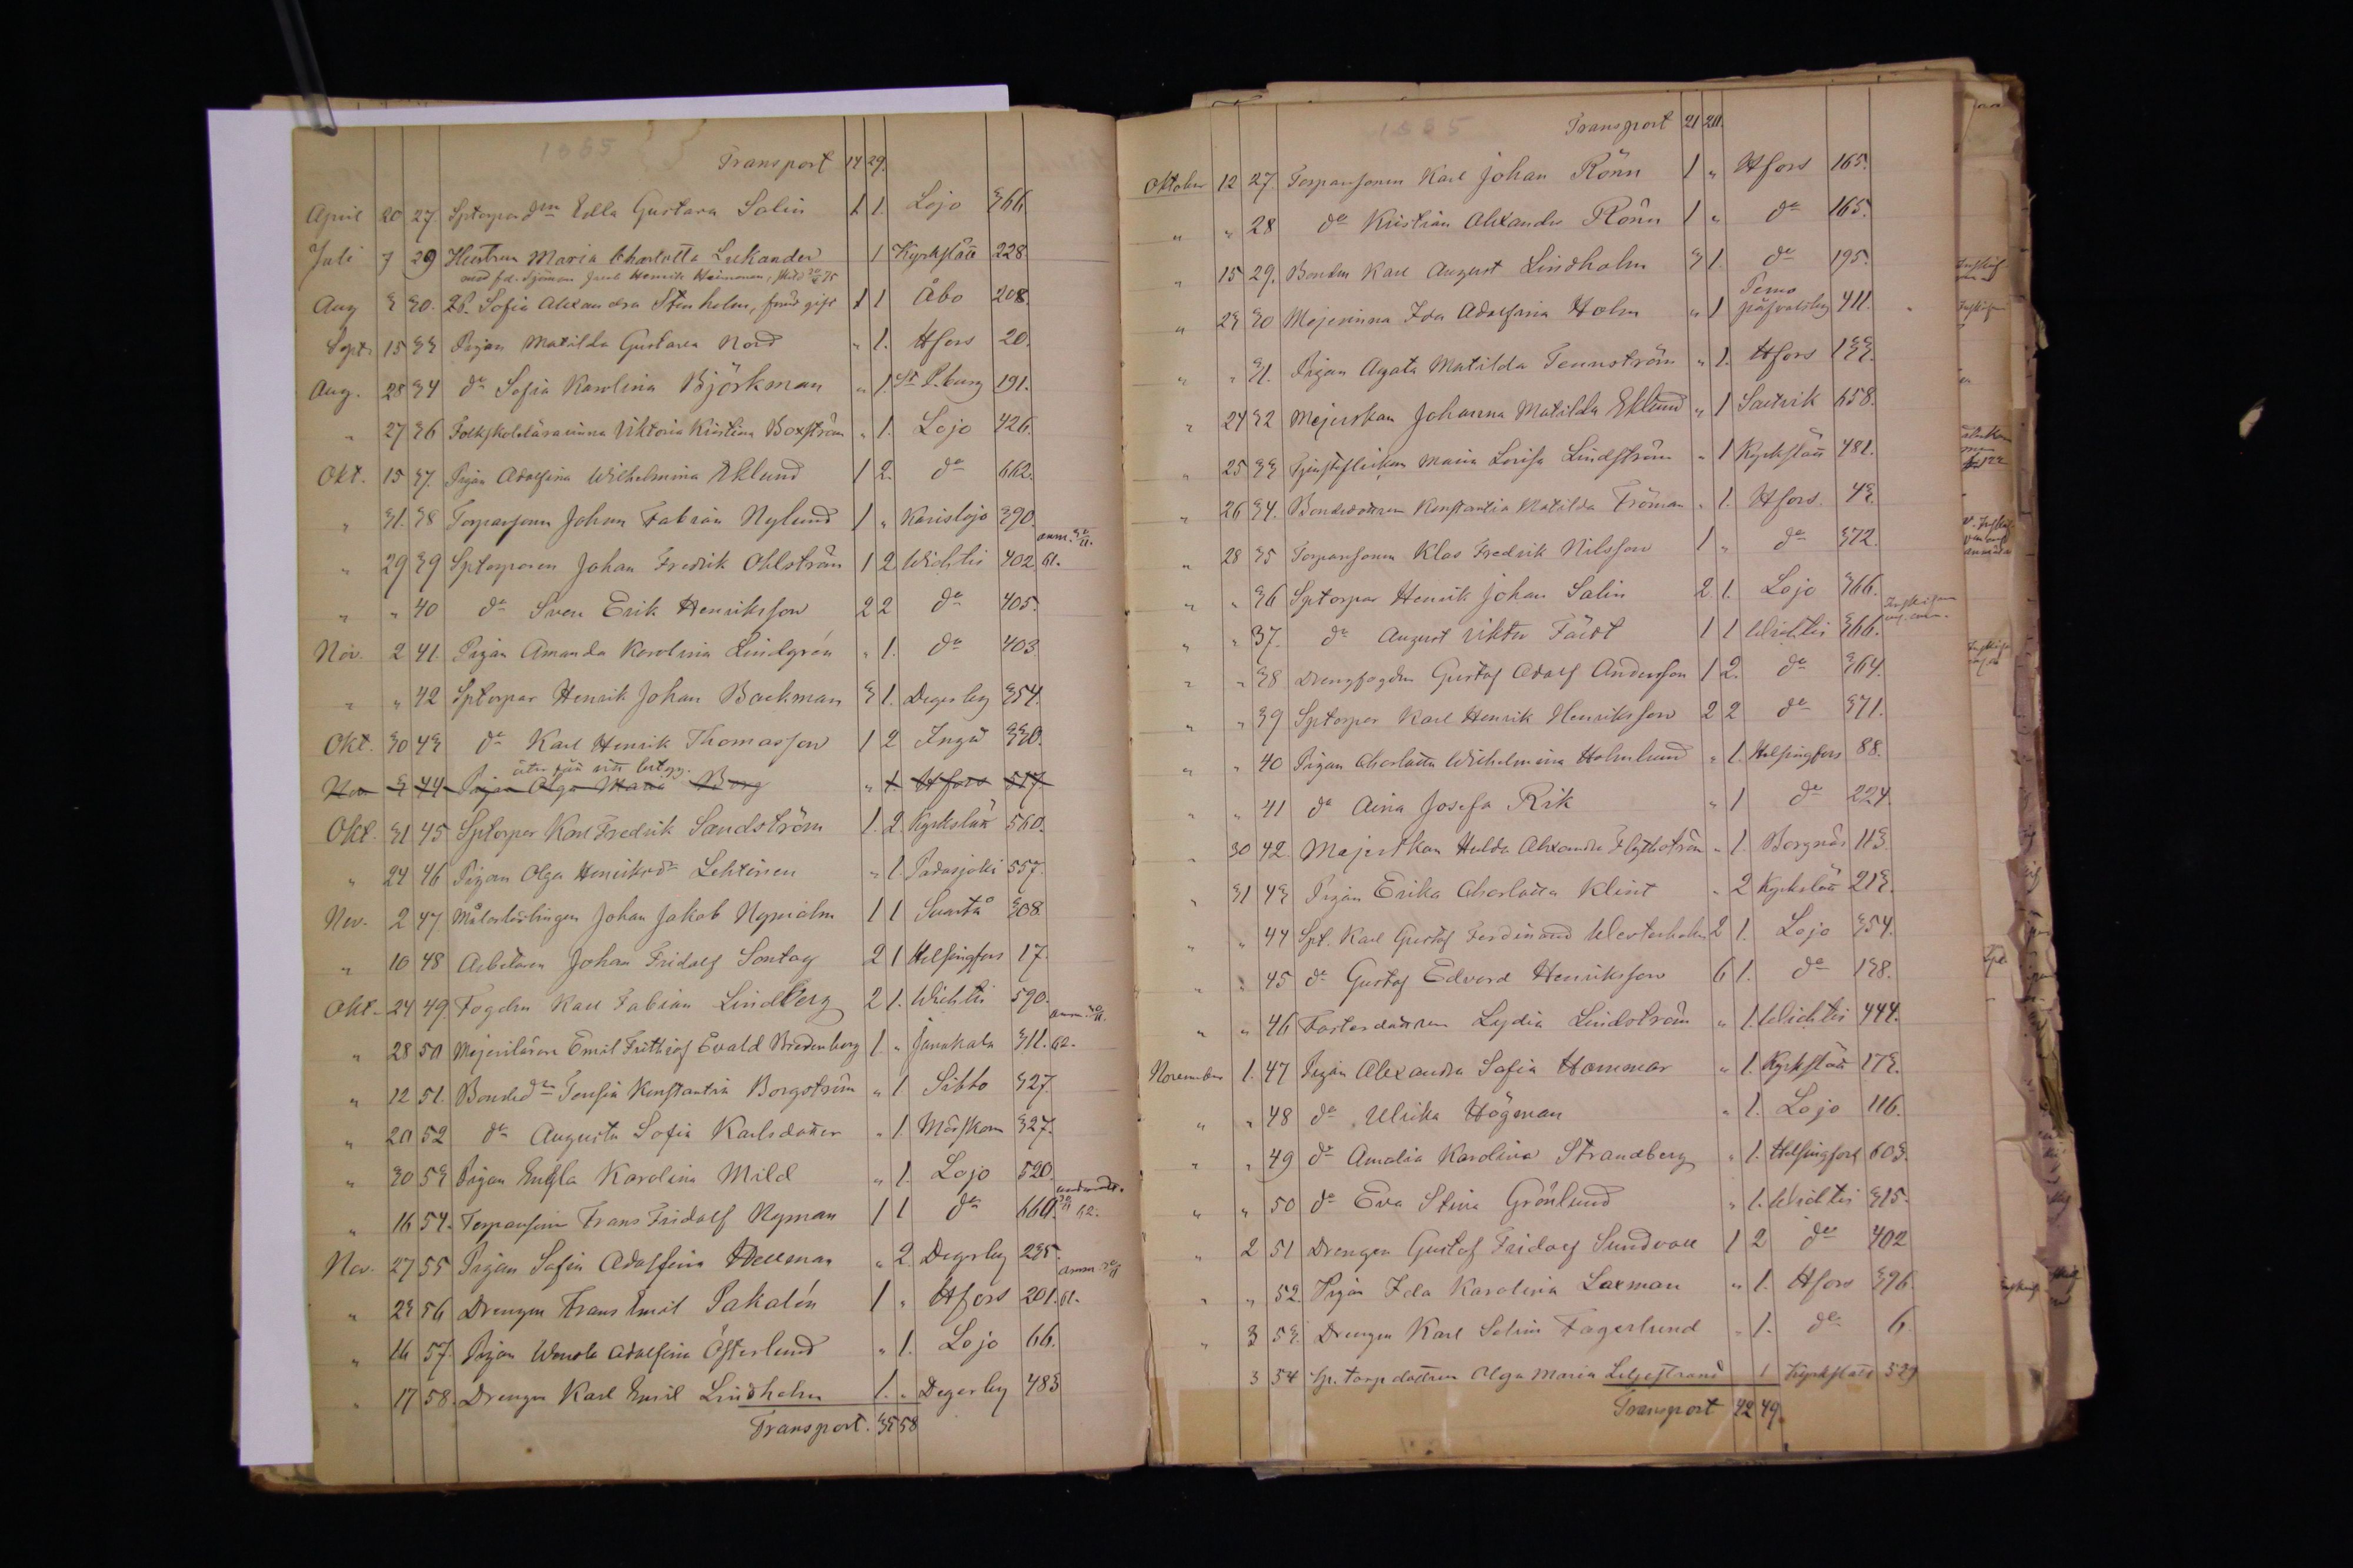 1885
Transport 14 29.
April 20 27. Sptorpar dm Edla Gustava Salin 1 1. Lojo 366.
Juli 7 29 Hustrun Maria Charlotta Lukander 1 Kyrkslätt 228.
med f.d. Sjöman Jacob Henrik Heimonen
Aug 3 30. 26. Sofia Alexandra Stenholm, frånsk. gift 1 1 Åbo 208.
Sept. 15 33 Pigan Matilda Gustava Nord " 1. Hfors 20.
Aug. 28 34 do Sofia Karolina Björkman " 1. St P.burg 191.
" 27 36 Folkskolelärarinna Viktoria Kristina Boxström " 1. Lojo 426.
Okt. 15 37. Pigan Adolfina Wilhelmina Eklund 1 2. do 662.
" 31. 38 Torparsonen Johan Fabian Nylund 1 " Karislojo 390.
" 29 39 Sptorparen Johan Fredrik Ohlström 1 2 Wichtis 402. 61.
" " 40 do Sven Erik Henriksson 2 2 do 405.
Nov. 2 41. Pigan Amanda Karolina Lindgrén " 1. do 403
" " 42 Sptorpar Henrik Johan Backman 3 1. Degerby 354.
Okt. 30 43 do Karl Henrik Thomasson 1 2 Ingå 330.
Nov 3 44 Pigan Olga Maria Berg " 1. Hfors 517.
Okt. 31 45 Sptorpar Karl Fredrik Sandström 1. 2. Kyrkslätt 560.
" 24 46 Pigan Olga Henriksdr Lehtinen " 1. Padasjoki 557.
Nov. 2 47 Målarlärlingen Johan Jakob Nyholm 1 1 Svartå 308.
" 10 48 Arbetaren Johan Fridolf Sontag 2 1 Helsingfors 17.
Okt. 24 49. Fogden Karl Fabian Lindberg 2 1. Wichtis 590.
" 28 50 Mejerilären Emil Frithiof Evald Bredenberg 1. " Janakala 311. 62.
" 12 51. Bonded. Konstantia Borgström " 1 Sibbo 327.
" 20 52 do Augusta Sofia Karlsdotter " 1. Mörskom 327.
" 30 53 Pigan Engla Karolina Mild " 1. Lojo 520.
" 16 54. Torparsonen Frans Fridolf Nyman 1 1 do 660. 62.
Nov. 27 55 Pigan Sofia Adolfina Hellman " 2. Degerby 235.
" 23 56 Drengen Frans Emil Sakalén 1 " Hfors 201. 61.
" 16 57. Pigan Wendla Adolfina Österlund " 1. Lojo 66.
" 17 58. Drengen Karl Emil Lindholm 1. " Degerby 483
Transport. 35 58
1885
Transport 21 20.
Oktober 12 27. Torparsonen Karl Johan Rönn 1 " Hfors 165.
" " 28 do Kristian Alexander Rönn 1 " do 165.
" 15 29. Bonden Karl August Lindholm 3 1. do 195.
" 23 30 Mejerinna Ida Adolfina Holm " 1 Perno 411.
" " 31. Pigan Agata Matilda Tennström " 1. Hfors 133.
" 24 32 Mejerskan Johanna Matilda Eklund " 1 Saltvik 658.
" 25 33 Tjenstflickan Maria Lovisa Lindström " 1 Kyrkslätt 481.
" 26 34. Bondedottren Konstantia Matilda Fröman " 1. Hfors. 43.
" 28 35 Torparsonen Klas Fredrik Nilsson 1 " do 372.
" " 36 Sptorpar Henrik Johan Salin 2. 1. Lojo 366.
" " 37. do August Viktor Färdt 1 1 Wichtis 366.
" " 38 Drengfogden Gustaf Adolf Andersson 1 2. do 364.
" " 39 Sptorpar Karl Henrik Henriksson 2 2 do 371.
" " 40 Pigan Charlotta Wilhelmina Holmlund " 1. Helsingfors 88.
" " 41 do Aina Josefa Rik " 1 do 224.
" 30 42. Mejerskan Hulda Alexandra Flythström " 1. Borgnäs 113.
" 31 43 Pigan Erika Charlotta Klint " 2 Kyrkslätt 213.
" " 44 Spt. Karl Gustaf Ferdinand Westerholm 2 1. Lojo 354.
" " 45 do Gustaf Edvard Henriksson 6 1. do 138.
" " 46 Fosterdottren Lydia Lindström " 1. Wichtis 444.
November 1. 47 Pigan Alexandra Sofia Hammar " 1. Kyrkslätt 173.
" " 48 do Ulrika Högman " 1. Lojo 116.
" " 49 do Amalia Karolina Strandberg " 1. Helsingfors 603.
" " 50 do Eva Stina Grönlund " 1. Wichtis 315.
" 2 51 Drengen Gustaf Fridolf Sundvall 1 2 do 402
" " 52. Pigan Ida Karolina Laxman " 1. Hfors 396.
" 3 53. Drengen Karl Selim Fagerlund " 1. do 6.
3 54 Sp. torp dottren Olga Maria Liljestrand 1 Kyrkslätt 529
Transport 42 49.